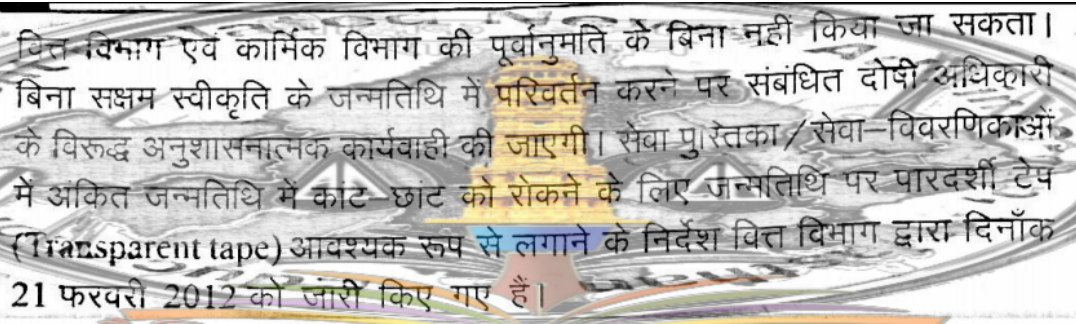 वित्त विभाग एवं कार्मिक विभाग की पूर्वानुमति के बिना नहीं किया जा सकता।
बिना सक्षम स्वीकृति के जन्मतिथि में परिवर्तन करने पर संबंधित दोषी अधिकारी
के विरूद्ध अनुशासनात्मक कार्यवाही की जाएगी। सेवा पुस्तिका/सेवा–विवरणिकाओं
में अंकित जन्मतिथि में कांट–छांट को रोकने के लिए जन्मतिथि पर पारदर्शी टेप
(Transparent tape) आवश्यक रूप से लगाने के निर्देश वित्त विभाग द्वारा दिनाँक
21 फरवरी 2012 को जारी किए गए हैं।